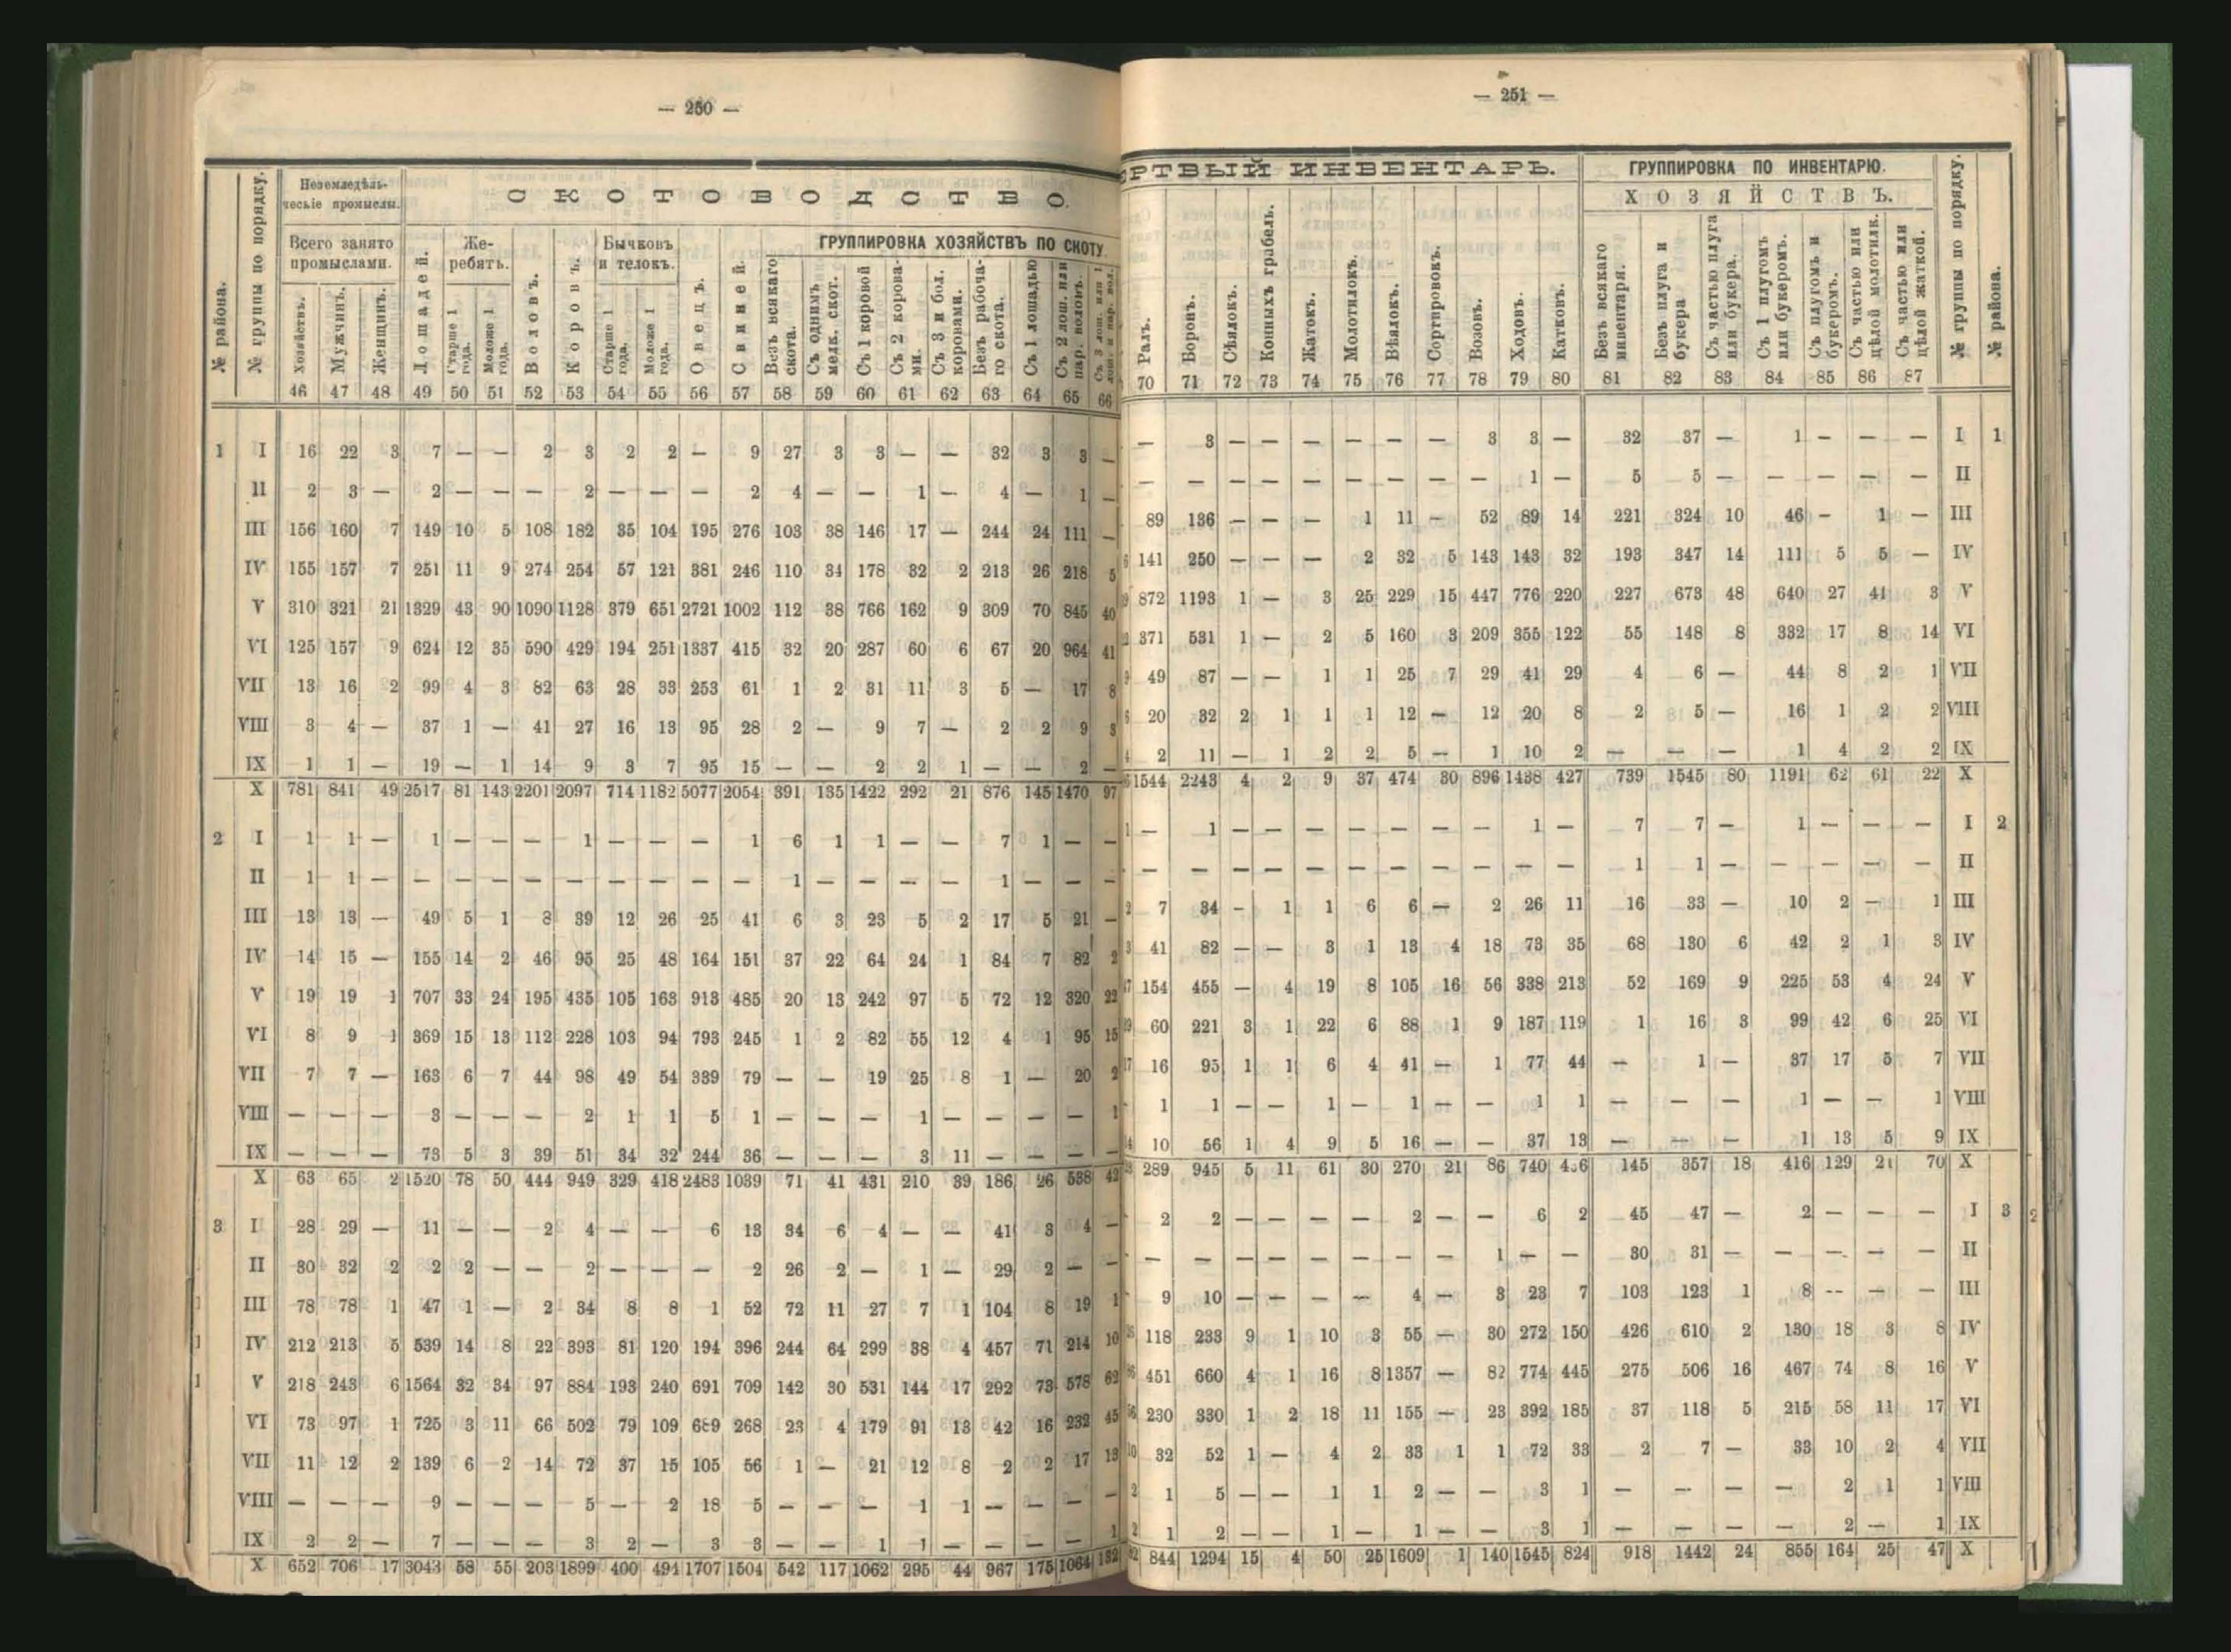 — 250 —
№ района.
№ группы по порядку.
Неземледѣль-
ческіе промыслы.
СКОТОВОДСТВО.
Всего занято
промыслами.
Же-
ребятъ.
Бычковъ
и телокъ.
ГРУППИРОВКА ХОЗЯЙСТВЪ ПО СКОТУ
Хозяйствъ.
Мужчинъ.
Женщинъ.
Лошадей.
Старше 1 года.
Моложе 1 года.
Воловъ.
Коровъ.
Старше 1 года.
Моложе 1 года.
Овецъ.
Свиней.
Безъ всякаго скота.
Съ однимъ мелк. скот.
Съ 1 коровой
Съ 2 корова-ми.
Съ 3 и бол. коровами.
Безъ рабоча-го скота.
Съ 1 лошадью
Съ 2 лош. или пар. воловъ.
46 47 48 49 50 51 52 53 54 55 56 57 58 59 60 61 62 63 64 65 66
1 I 16 22 3 7 — — 2 3 2 2 — 9 27 3 3 — — 32 3 3 —
II 2 3 — 2 — — — 2 — — — 2 4 — — 1 — 4 — 1 —
III 156 160 7 149 10 5 108 182 35 104 195 276 103 38 146 17 — 244 24 111 —
IV 155 157 7 251 11 9 274 254 57 121 381 246 110 34 178 32 2 213 26 218 5
V 310 321 21 1329 43 90 1090 1128 379 651 2721 1002 112 38 766 162 9 309 70 845 40
VI 125 157 9 624 12 35 590 429 194 251 1337 415 32 20 287 60 6 67 20 964 41
VII 13 16 2 99 4 3 82 63 28 33 253 61 1 2 31 11 3 5 — 17 8
VIII 3 4 — 37 1 — 41 27 16 13 95 28 2 — 9 7 — 2 2 9 3
IX 1 1 — 19 — 1 14 9 3 7 95 15 — — 2 2 1 — — 2 —
X 781 841 49 2517 81 143 2201 2097 714 1182 5077 2054 391 135 1422 292 21 876 145 1470 97
2 I 1 1 — 1 — — — 1 — — — 1 6 1 1 — — 7 1 — —
II 1 1 — — — — — — — — — — 1 — — — — 1 — — —
III 13 13 — 49 5 1 8 39 12 26 25 41 6 3 23 5 2 17 5 21 —
IV 14 15 — 155 14 2 46 95 25 48 164 151 37 22 64 24 1 84 7 82 2
V 19 19 1 707 33 24 195 435 105 163 913 485 20 13 242 97 5 72 12 320 22
VI 8 9 1 369 15 13 112 228 103 94 793 245 1 2 82 55 12 4 1 95 15
VII 7 7 — 163 6 7 44 98 49 54 339 79 — — 19 25 8 1 — 20 2
VIII — — — 3 — — — 2 1 1 5 1 — — — 1 — — — — 1
IX — — — 73 5 3 39 51 34 32 244 36 — — — 3 11 — — — —
X 63 65 2 1520 78 50 444 949 329 418 2483 1039 71 41 431 210 39 186 26 538 42
3 I 28 29 — 11 — — 2 4 — — 6 13 34 6 4 — — 41 3 4 —
II 30 32 2 2 2 — — 2 — — — 2 26 2 — 1 — 29 2 — —
III 78 78 1 47 1 — 2 34 8 8 1 52 72 11 27 7 1 104 8 19 1
IV 212 213 5 539 14 8 22 393 81 120 194 396 244 64 299 38 4 457 71 214 10
V 218 243 6 1564 32 34 97 884 193 240 691 709 142 30 531 144 17 292 73 578 62
VI 73 97 1 725 3 11 66 502 79 109 689 268 23 4 179 91 13 42 16 232 45
VII 11 12 2 139 6 2 14 72 37 15 105 56 1 — 21 12 8 2 2 17 13
VIII — — — 9 — — — 5 — 2 18 5 — — — 1 1 — — — —
IX 2 2 — 7 — — — 3 2 — 3 3 — — 1 1 — — — — 1
X 652 706 17 3043 58 55 203 1899 400 494 1707 1504 542 117 1062 295 44 967 175 1064 132
— 251 —
РТВЫЙ ИНВЕНТАРЬ.
ГРУППИРОВКА ПО ИНВЕНТАРЮ.
ХОЗЯЙСТВЪ.
Ралъ.
Боронъ.
Сѣялокъ.
Конныхъ грабель.
Жатокъ.
Молотилокъ.
Вѣялокъ.
Сортировокъ.
Возовъ.
Ходовъ.
Катковъ.
Безъ всякаго инвентаря.
Безъ плуга и букера
Съ частью плуга или букера.
Съ 1 плугомъ или букеромъ.
Съ плугомъ и букеромъ.
Съ частью или цѣлой молотилк.
Съ частью или цѣлой жаткой.
№ группы по порядку.
№ района.
70 71 72 73 74 75 76 77 78 79 80 81 82 83 84 85 86 87
— 3 — — — — — — 3 3 — 32 37 — 1 — — — I 1
— — — — — — — — — 1 — 5 5 — — — — — II
89 136 — — — 1 11 — 52 89 14 221 324 10 46 — 1 — III
141 250 — — — 2 32 5 143 143 32 193 347 14 111 5 5 — IV
872 1193 1 — 3 25 229 15 447 776 220 227 673 48 640 27 41 3 V
371 531 1 — 2 5 160 3 209 355 122 55 148 8 332 17 8 14 VI
49 87 — — 1 1 25 7 29 41 29 4 6 — 44 8 2 1 VII
20 32 2 1 1 1 12 — 12 20 8 2 5 — 16 1 2 2 VIII
2 11 — 1 2 2 5 — 1 10 2 — — — 1 4 2 2 IX
1544 2243 4 2 9 37 474 30 896 1438 427 739 1545 80 1191 62 61 22 X
— 1 — — — — — — — 1 — 7 7 — 1 — — — I 2
— — — — — — — — — — — 1 1 — — — — — II
7 34 — 1 1 6 6 — 2 26 11 16 33 — 10 2 — 1 III
41 82 — — 3 1 13 4 18 73 35 68 130 6 42 2 1 3 IV
154 455 — 4 19 8 105 16 56 338 213 52 169 9 225 53 4 24 V
60 221 3 1 22 6 88 1 9 187 119 1 16 3 99 42 6 25 VI
16 95 1 1 6 4 41 — 1 77 44 — 1 — 37 17 5 7 VII
1 1 — — 1 — 1 — — 1 1 — — — 1 — — 1 VIII
10 56 1 4 9 5 16 — — 37 13 — — — 1 13 5 9 IX
289 945 5 11 61 30 270 21 86 740 436 145 357 18 416 129 21 70 X
2 2 — — — — 2 — — 6 2 45 47 — 2 — — — I 3
— — — — — — — — 1 — — 30 31 — — — — — II
9 10 — — — — 4 — 3 23 7 103 123 1 8 — — — III
118 233 9 1 10 3 55 — 30 272 150 426 610 2 130 18 3 8 IV
451 660 4 1 16 8 1357 — 82 774 445 275 506 16 467 74 8 16 V
230 330 1 2 18 11 155 — 23 392 185 37 118 5 215 58 11 17 VI
32 52 1 — 4 2 33 1 1 72 33 2 7 — 33 10 2 4 VII
1 5 — — 1 1 2 — — 3 1 — — — — 2 1 1 VIII
1 2 — — 1 — 1 — — 3 1 — — — — 2 — 1 IX
844 1294 15 4 50 25 1609 1 140 1545 824 918 1442 24 855 164 25 47 X